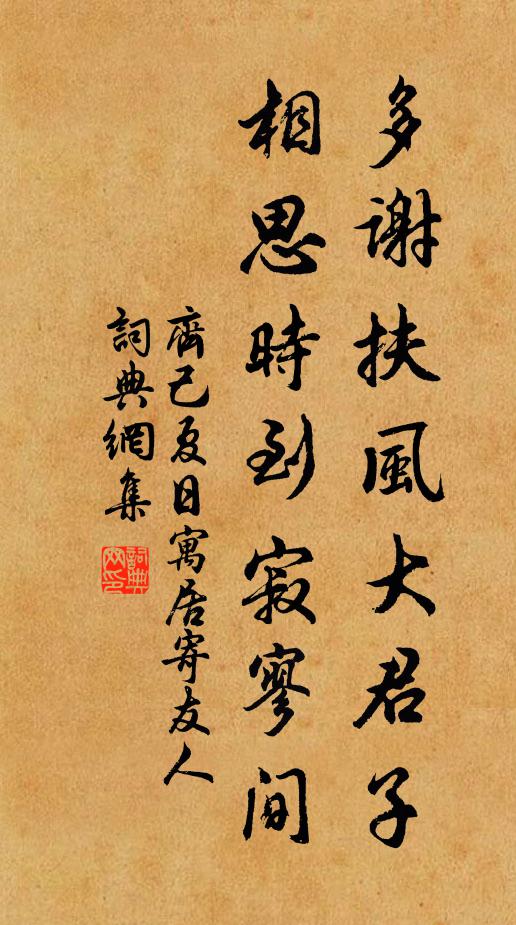 多謝扶風大君子
相思時到寂寥間
齊己夏日寓居寄友人
詞典網集
詞典网印